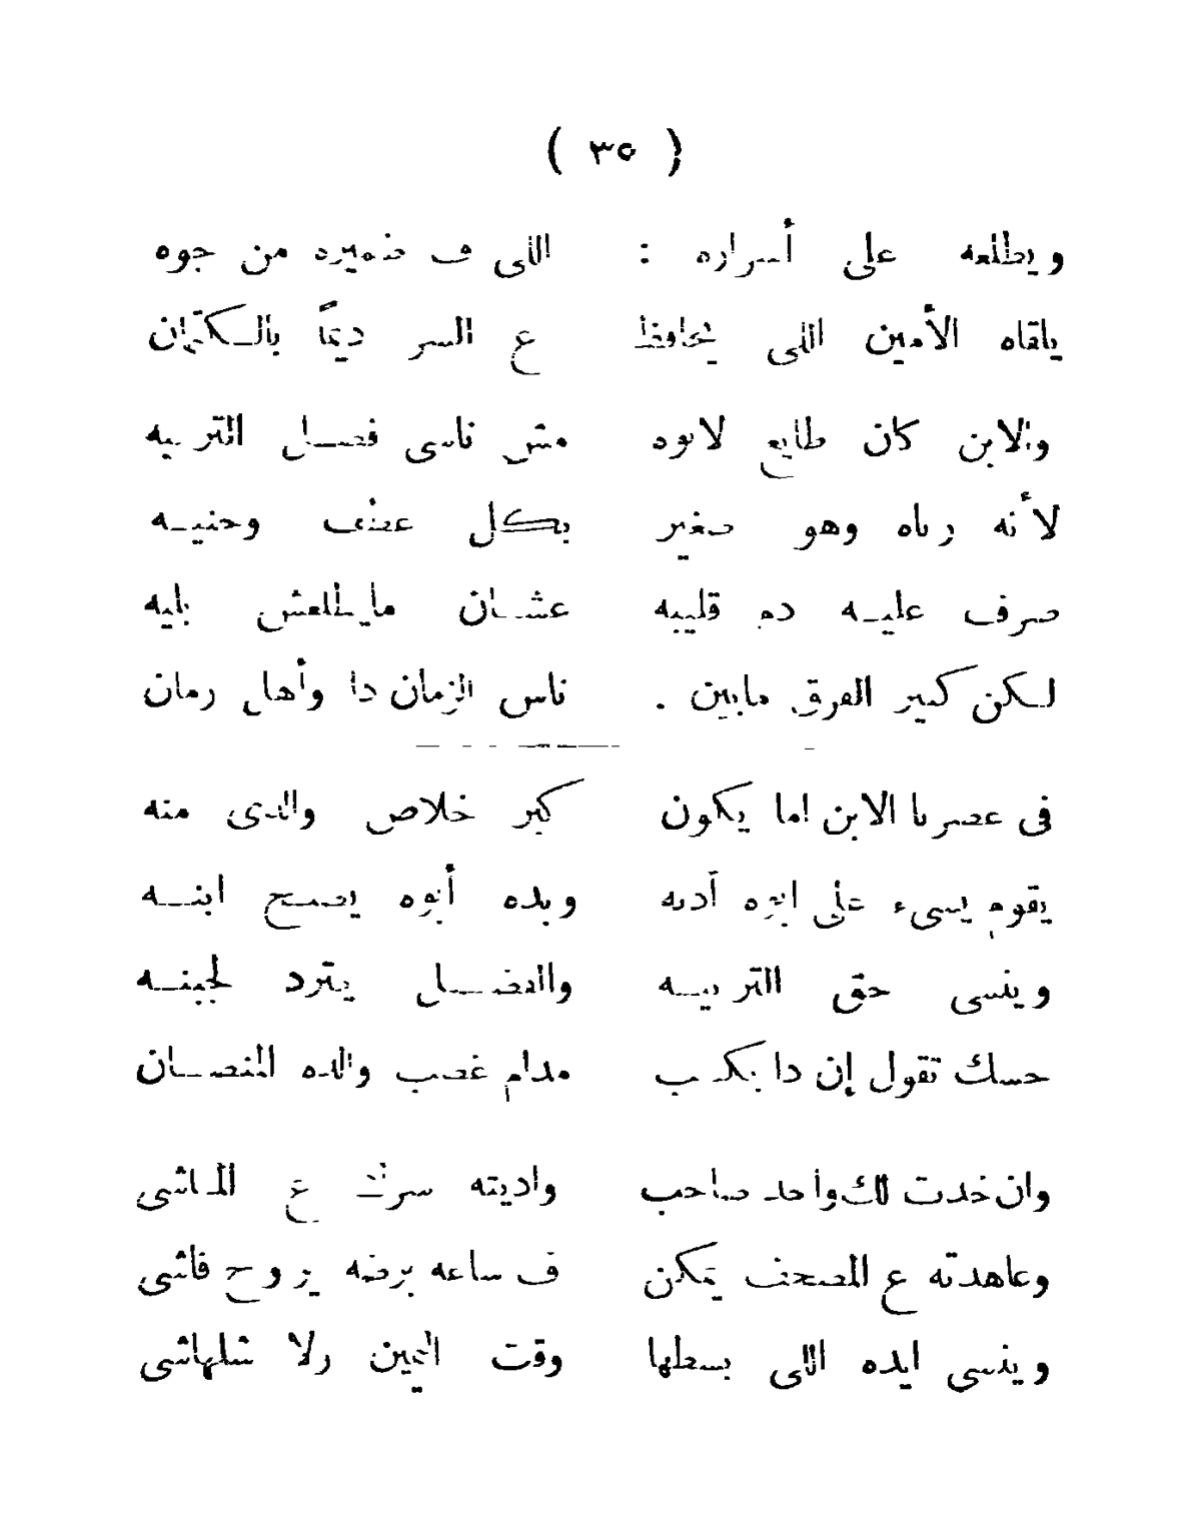 ( ٣٥ )
ويطلعه على أسراره : اللى ف ضميره من جوه
يلقاه الأمين اللى يحافظ ع السر ديمًا بالكتمان
والابن كان طايع لابوه مش ناسى فصل التربيه
لأنه رباه وهو صغير بكل عطف وحنيه
صرف عليه دم قليبه عشان مايطلعش بليه
لكن كبير الفرق مابين . ناس الزمان دا وأهل زمان
فى عصرنا الابن اما يكون كبر خلاص والدى منه
يقوم يسىء على ابوه أدبه وبده أبوه يصبح ابنه
وينسى حق التربيه والفضل يترد لجبنه
حسك تقول إن دا بكسب مدام غصب والده المنصان
وان خدت لك واحد صاحب واديته سرك ع الماشى
وعاهدته ع المصحف يمكن ف ساعه برضه يروح فاشى
وينسى ايده اللى بسطها وقت اليمين ولا شلهاشى